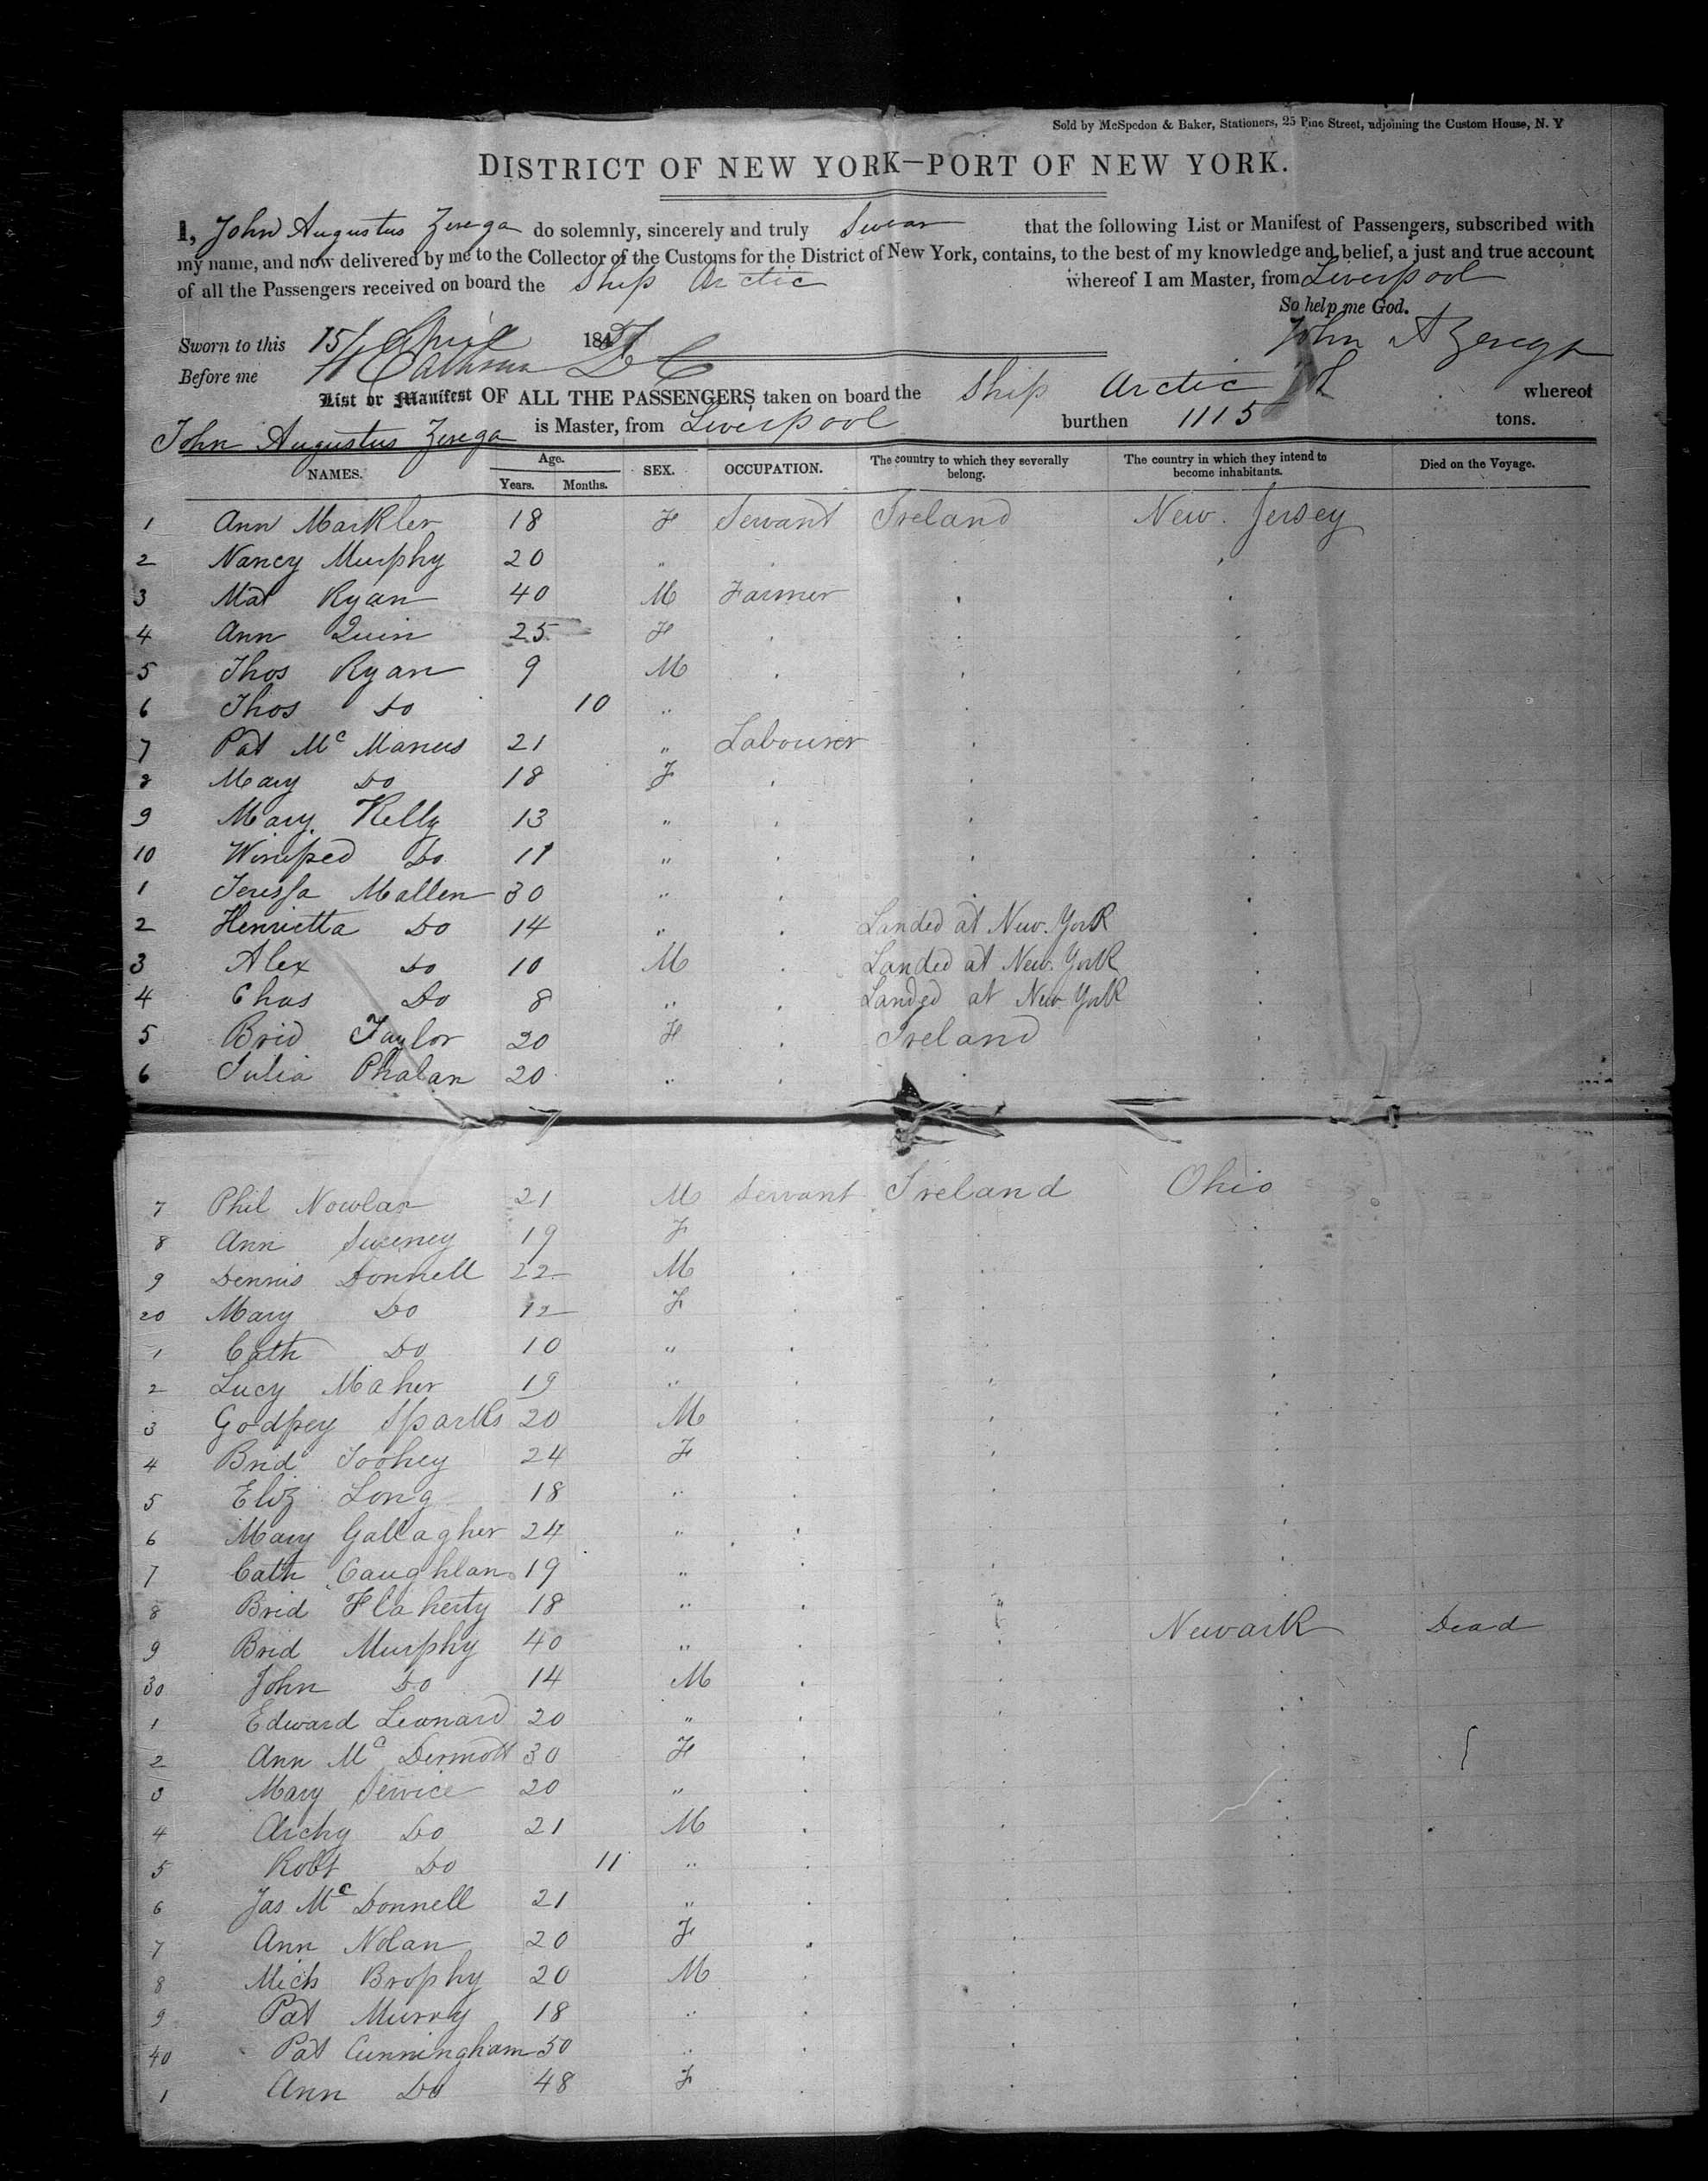 Sold by McSpedon & Baker, Stationers, 25 Pine Street, adjoining the Custom House, N. Y
DISTRICT OF NEW YORK—PORT OF NEW YORK.
I, John Augustus Zerega do solemnly, sincerely and truly Swear that the following List or Manifest of Passengers, subscribed with
my name, and now delivered by me to the Collector of the Customs for the District of New York, contains, to the best of my knowledge and belief, a just and true account
of all the Passengers received on board the Ship Arctic whereof I am Master, from Liverpool
So help me God.
Sworn to this 15 April 184 John A Zerega
Before me Calhoun D C
List or Manifest OF ALL THE PASSENGERS taken on board the Ship Arctic whereof
John Augustus Zerega is Master, from Liverpool burthen 1115 tons.
NAMES. Age. Years. Months. SEX. OCCUPATION. The country to which they severally belong. The country in which they intend to become inhabitants. Died on the Voyage.
1 Ann Markler 18 F Servant Ireland New Jersey
2 Nancy Murphy 20 "
3 Mat Ryan 40 M Farmer
4 Ann Quin 25 F
5 Thos Ryan 9 M
6 Thos Do 10 "
7 Pat Mc Manus 21 " Labourer
8 Mary Do 18 F
9 Mary Kelly 13 "
10 Winifred Do 11 "
1 Teressa Mallen 30 "
2 Henrietta Do 14 " Landed at New York
3 Alex Do 10 M Landed at New York
4 Chas Do 8 " Landed at New York
5 Brid Taylor 20 F Ireland
6 Julia Phalan 20 "
7 Phil Nowlan 21 M Servant Ireland Ohio
8 Ann Sweeney 19 F
9 Dennis Donnell 22 M
20 Mary Do 12 F
1 Cath Do 10 "
2 Lucy Maher 19 "
3 Godfrey Sparks 20 M
4 Brid Toohey 24 F
5 Eliz Long 18 "
6 Mary Gallagher 24 "
7 Cath Caughlan 19 "
8 Brid Flaherty 18 " "
9 Brid Murphy 40 " Newark Dead
30 John Do 14 M
1 Edward Leonard 20 "
2 Ann Mc Dermott 30 F
3 Mary Service 20 "
4 Archy Do 21 M
5 Robt Do 11 "
6 Jas Mc Donnell 21 "
7 Ann Nolan 20 F
8 Mich Brophy 20 M
9 Pat Murry 18 "
40 Pat Cunningham 50 "
1 Ann Do 48 F